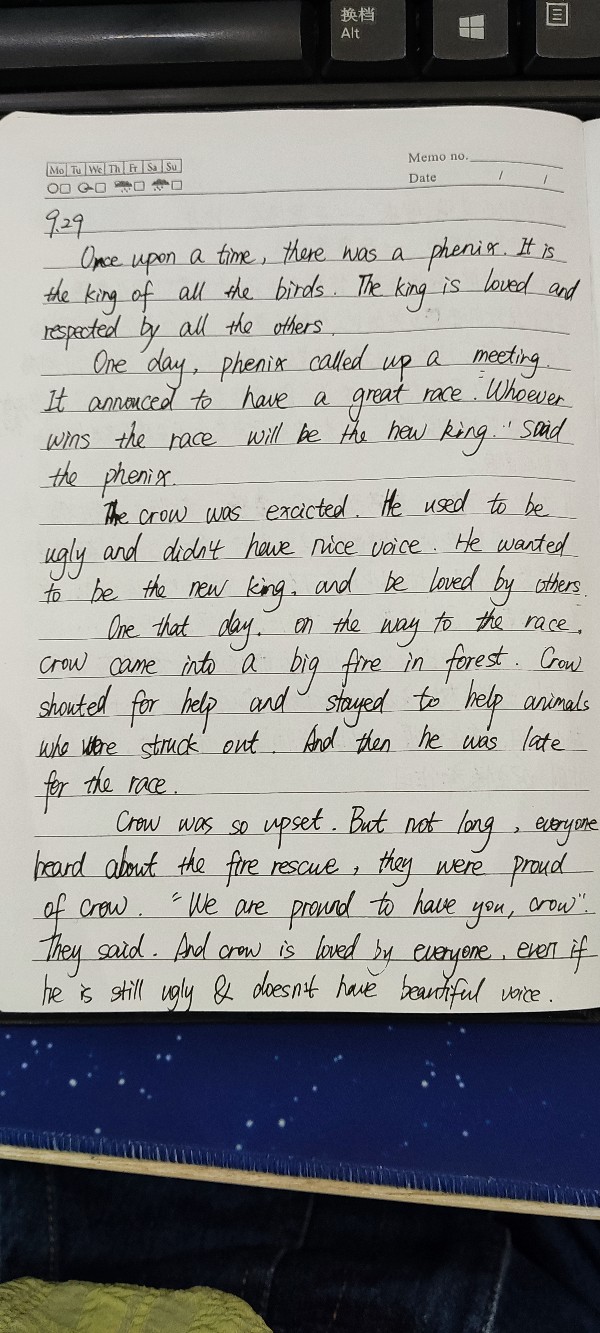 换档
Alt
Mo Tu We Th Fr Sa Su
Memo no.
Date / /
9.29
Once upon a time, there was a phenix. It is
the king of all the birds. The king is loved and
respected by all the others.
One day, phenix called up a meeting.
It annouced to have a great race. "Whoever
wins the race will be the new king." said
the phenix.
The crow was exacited. He used to be
ugly and didn't have nice voice. He wanted
to be the new king, and be loved by others.
One that day, on the way to the race,
crow came into a big fire in forest. Crow
shouted for help and stayed to help animals
who were struck out. And then he was late
for the race.
Crow was so upset. But not long, everyone
heard about the fire rescue, they were proud
of crow. "We are pround to have you, crow".
They said. And crow is loved by everyone, even if
he is still ugly & doesn't have beautiful voice.